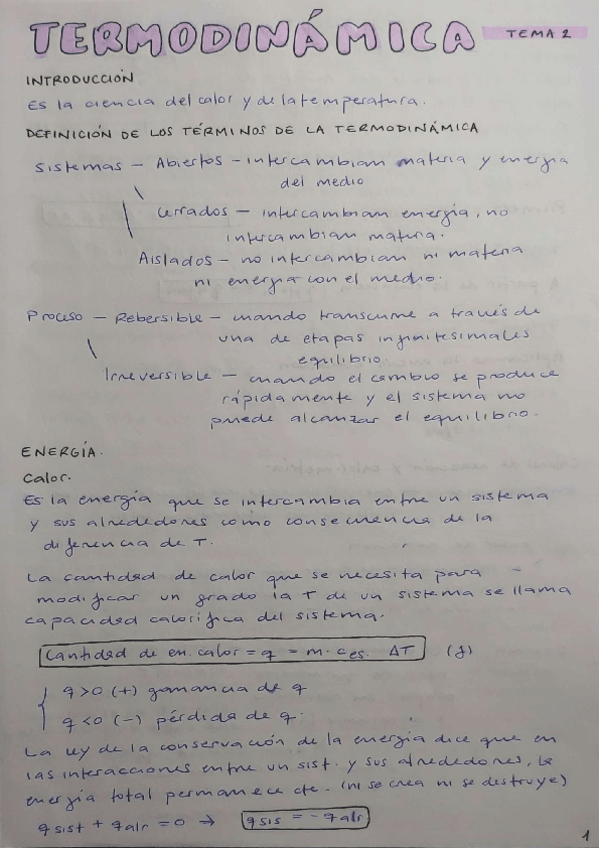 TERMODINÁMICA TEMA 2
INTRODUCCIÓN
Es la ciencia del calor y de la temperatura.
DEFINICIÓN DE LOS TÉRMINOS DE LA TERMODINÁMICA
Sistemas - Abiertos - intercambian materia y energía
del medio
Cerrados - intercambian energía, no
intercambian materia.
Aislados - no intercambian ni materia
ni energía con el medio.
Proceso - Rebersible - cuando transcurre a través de
una de etapas infinitesimales
equilibrio
Irreversible - cuando el cambio se produce
rápidamente y el sistema no
puede alcanzar el equilibrio.
ENERGÍA.
Calor.
Es la energía que se intercambia entre un sistema
y sus alrededores como consecuencia de la
diferencia de T.
La cantidad de calor que se necesita para
modificar un grado la T de un sistema se llama
capacidad calorífica del sistema.
Cantidad de en. calor = q = m · ces. ΔT (J)
q>0 (+) ganancia de q
q<0 (-) pérdida de q.
La ley de la conservación de la energía dice que en
las interacciones entre un sist. y sus alrededores, la
energía total permanece cte. (ni se crea ni se destruye)
qsist + qalr = 0 → qsis = - qalr
1